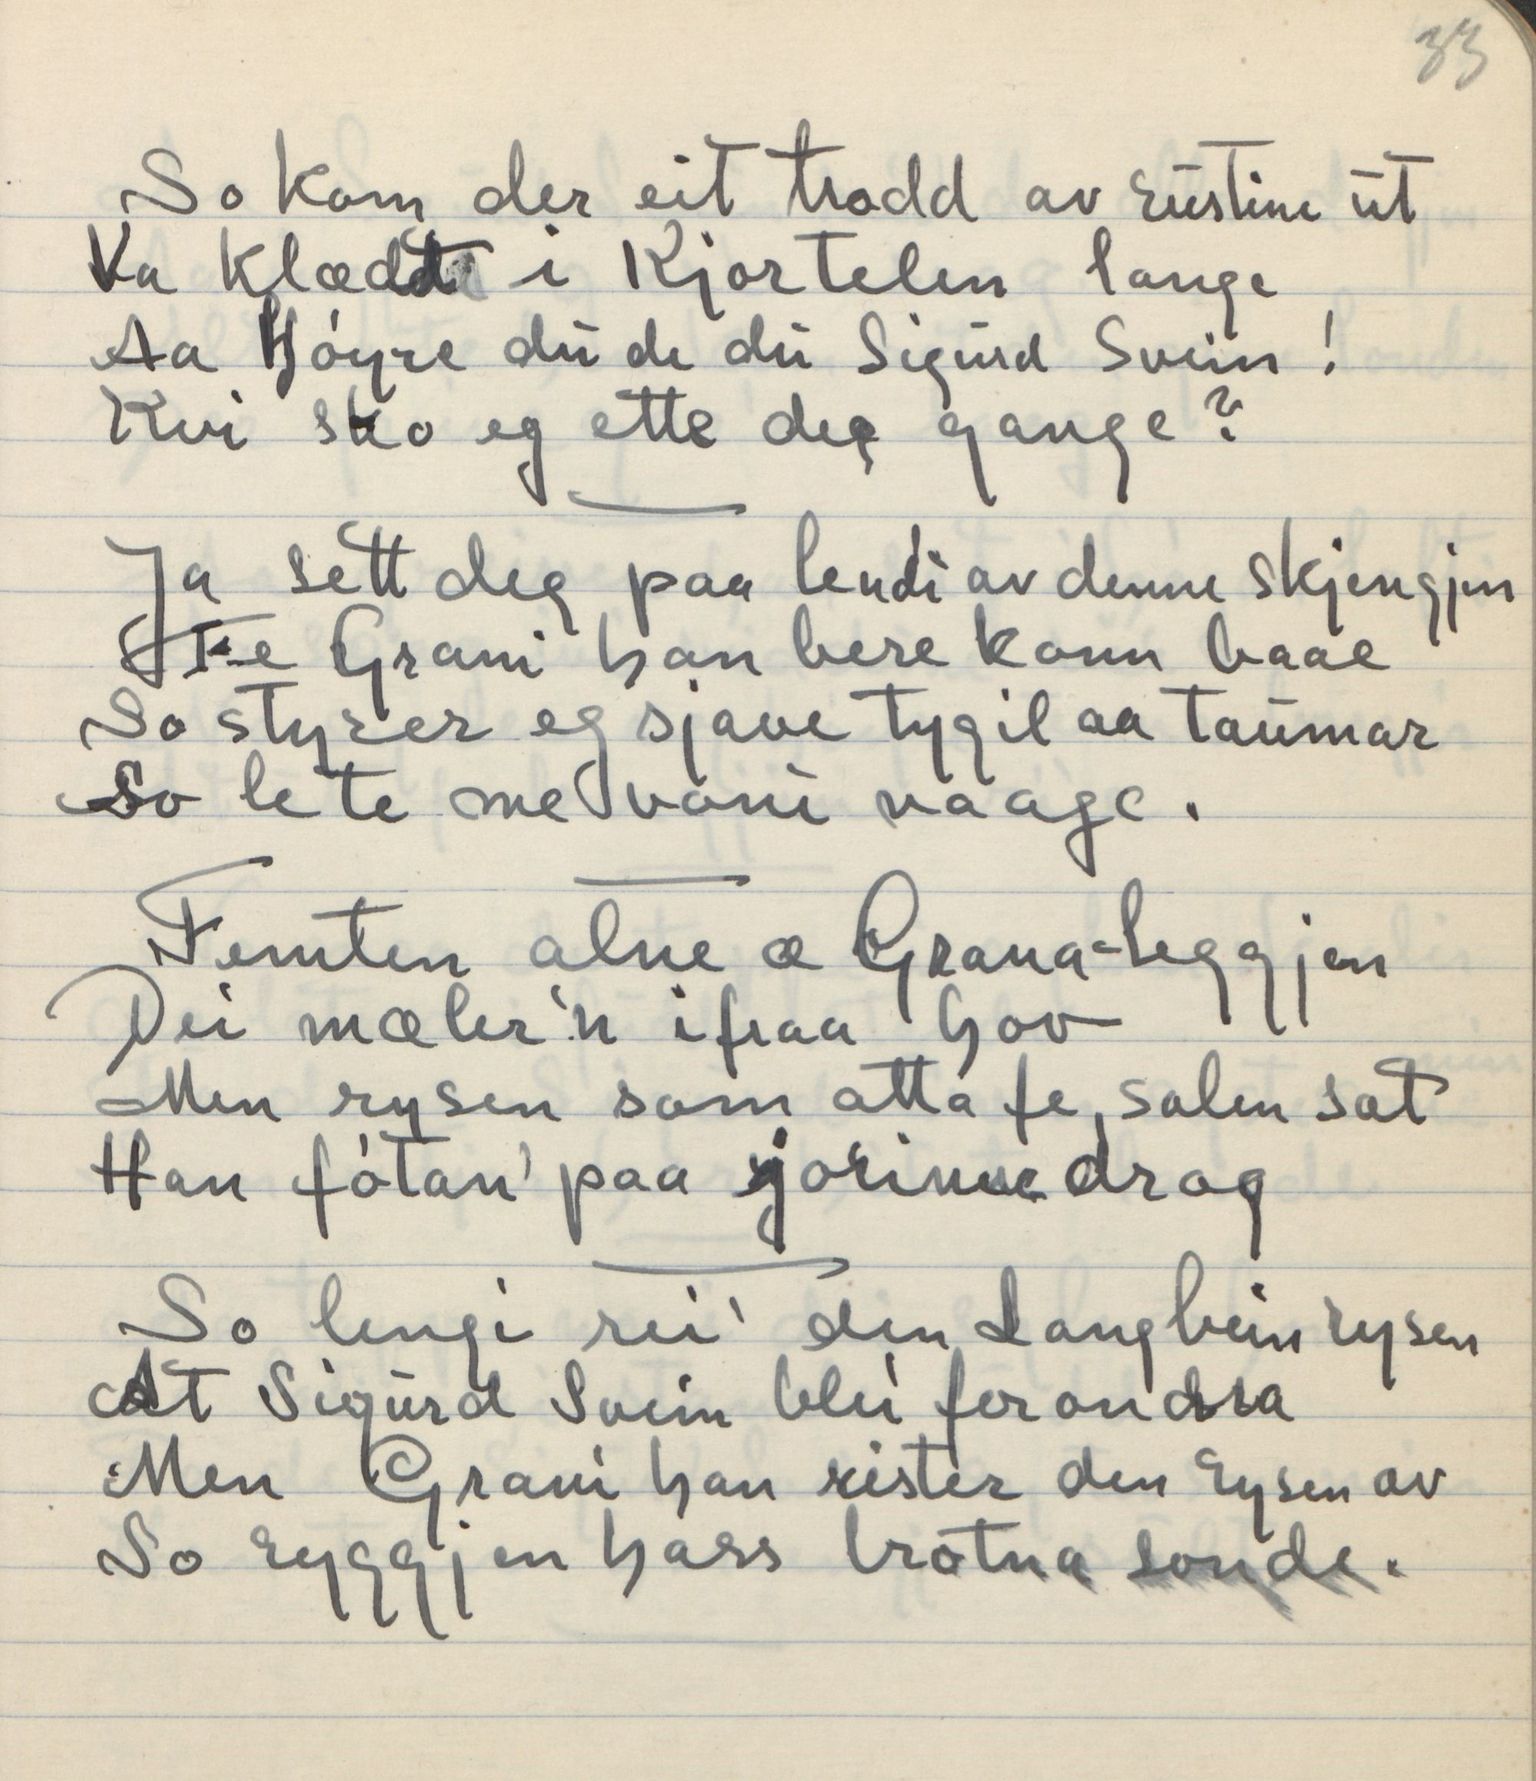 33
So kom der eit trodd av rustine ut
Va klædt i Kjortelen lange
Aa Høyre du de du Sigurd Svein!
Kvi sko eg ette deg gange?
Ja sett deg paa lendi av denne skjengjen
Fe Grani han bere kann baae
So styrer eg sjave tygil aa taumar
So lete me voni raage.
Femten alne æ Grana-Leggjen
Dei mæler'n ifraa hov
Men rysen som atta fe, salen sat
Han føtan' paa jorinne drog
So lengi rei' den Langbein rysen
At Sigurd Svein blei forandra
Men Grani han rister den rysen av
So ryggjen hass brotna sonde.